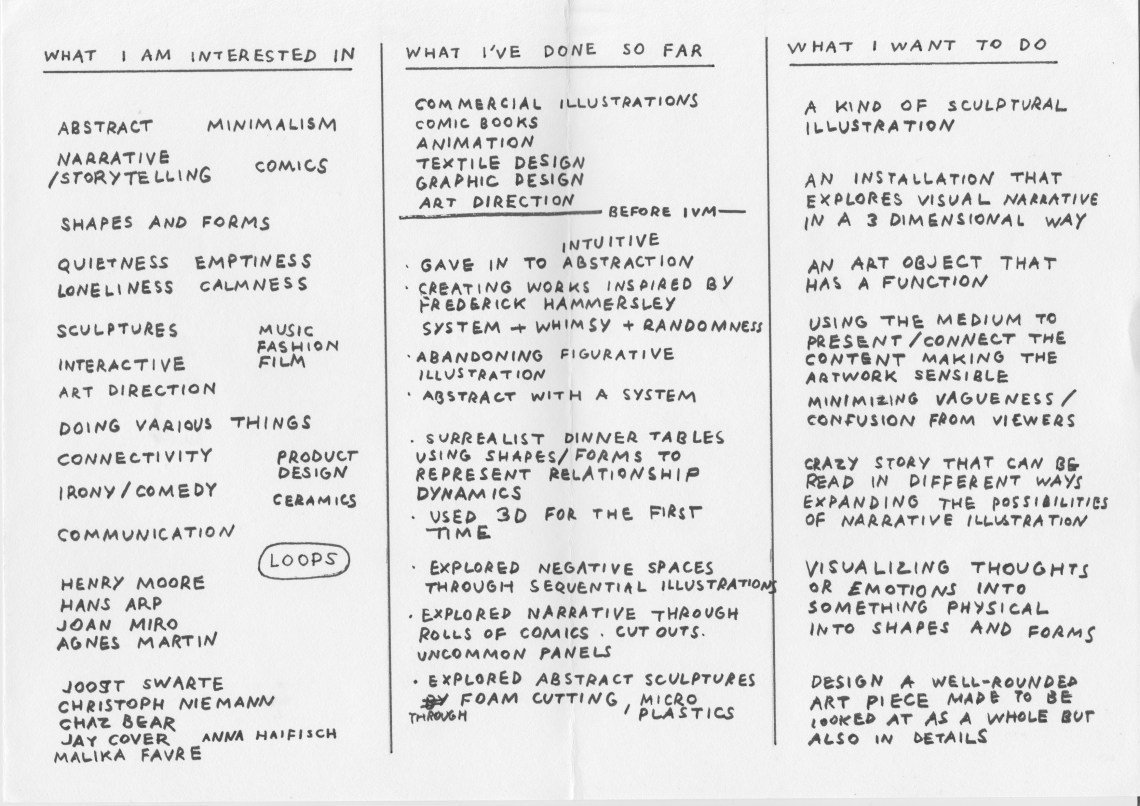 WHAT I AM INTERESTED IN
ABSTRACT MINIMALISM
NARRATIVE
/STORYTELLING COMICS
SHAPES AND FORMS
QUIETNESS EMPTINESS
LONELINESS CALMNESS
SCULPTURES MUSIC
FASHION
INTERACTIVE FILM
ART DIRECTION
DOING VARIOUS THINGS
CONNECTIVITY PRODUCT
DESIGN
IRONY/COMEDY CERAMICS
COMMUNICATION
LOOPS
HENRY MOORE
HANS ARP
JOAN MIRO
AGNES MARTIN
JOOST SWARTE
CHRISTOPH NIEMANN
CHAZ BEAR
JAY COVER ANNA HAIFISCH
MALIKA FAVRE
WHAT I'VE DONE SO FAR
COMMERCIAL ILLUSTRATIONS
COMIC BOOKS
ANIMATION
TEXTILE DESIGN
GRAPHIC DESIGN
ART DIRECTION
BEFORE IVM
INTUITIVE
· GAVE IN TO ABSTRACTION
· CREATING WORKS INSPIRED BY
FREDERICK HAMMERSLEY
SYSTEM + WHIMSY + RANDOMNESS
· ABANDONING FIGURATIVE
ILLUSTRATION
· ABSTRACT WITH A SYSTEM
· SURREALIST DINNER TABLES
USING SHAPES/FORMS TO
REPRESENT RELATIONSHIP
DYNAMICS
· USED 3D FOR THE FIRST
TIME
· EXPLORED NEGATIVE SPACES
THROUGH SEQUENTIAL ILLUSTRATIONS
· EXPLORED NARRATIVE THROUGH
ROLLS OF COMICS. CUT OUTS.
UNCOMMON PANELS
· EXPLORED ABSTRACT SCULPTURES
BY FOAM CUTTING, MICRO
THROUGH / PLASTICS
WHAT I WANT TO DO
A KIND OF SCULPTURAL
ILLUSTRATION
AN INSTALLATION THAT
EXPLORES VISUAL NARRATIVE
IN A 3 DIMENSIONAL WAY
AN ART OBJECT THAT
HAS A FUNCTION
USING THE MEDIUM TO
PRESENT/CONNECT THE
CONTENT MAKING THE
ARTWORK SENSIBLE
MINIMIZING VAGUENESS/
CONFUSION FROM VIEWERS
CRAZY STORY THAT CAN BE
READ IN DIFFERENT WAYS
EXPANDING THE POSSIBILITIES
OF NARRATIVE ILLUSTRATION
VISUALIZING THOUGHTS
OR EMOTIONS INTO
SOMETHING PHYSICAL
INTO SHAPES AND FORMS
DESIGN A WELL-ROUNDED
ART PIECE MADE TO BE
LOOKED AT AS A WHOLE BUT
ALSO IN DETAILS